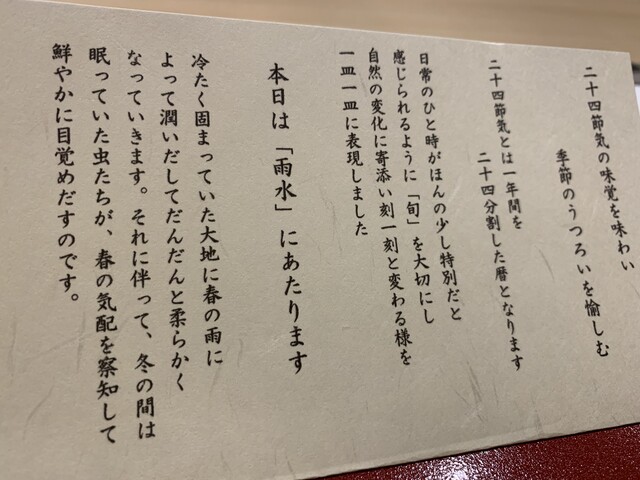 二十四節気の味覚を味わい
季節のうつろいを愉しむ
二十四節気とは一年間を
二十四分割した暦となります
日常のひと時がほんの少し特別だと
感じられるように「旬」を大切にし
自然の変化に寄添い刻一刻と変わる様を
一皿一皿に表現しました
本日は「雨水」にあたります
冷たく固まっていた大地に春の雨に
よって潤いだしてだんだんと柔らかく
なっていきます。それに伴って、冬の間は
眠っていた虫たちが、春の気配を察知して
鮮やかに目覚めだすのです。